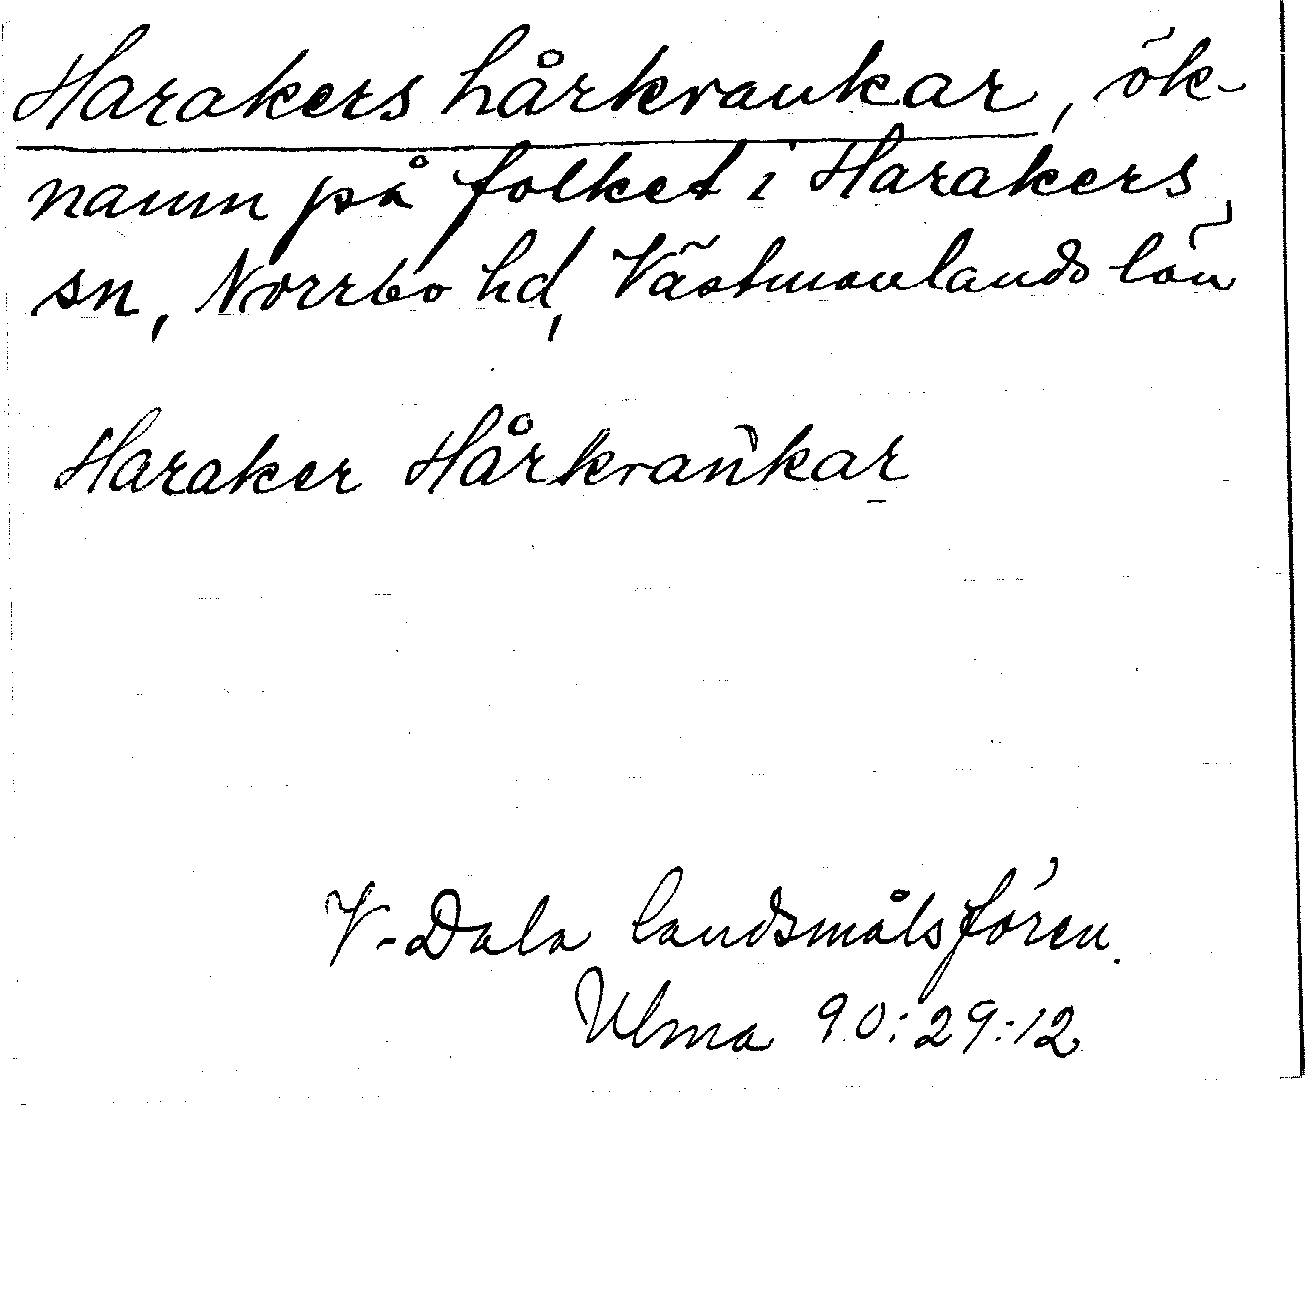 Harakers hårkrankar, ök-
namn på folket i Harakers
sn, Norrbo hd, Västmanlands län
Haraker Hårkrankar
V-Dala landsmålsfören.
Ulma 90:29:12